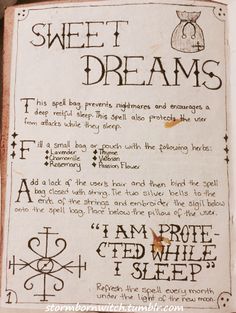 SWEET
DREAMS
This spell bag prevents nightmares and encourages a
deep restful sleep. This spell also protects the user
from attacks while they sleep.
Fill a small bag or pouch with the following herbs:
♦ Lavender ♦ Thyme
♦ Chamomile ♦ Valerian
♦ Rosemary ♦ Passion Flower
Add a lock of the user's hair and then bind the spell
bag closed with string. Tie two silver bells to the
ends of the strings and embroider the sigil below
onto the spell bag. Place below the pillow of the user.
"I AM PROTE-
CTED WHILE
I SLEEP"
Refresh the spell every month
under the light of the new moon.
1
stormbornwitch.tumblr.com